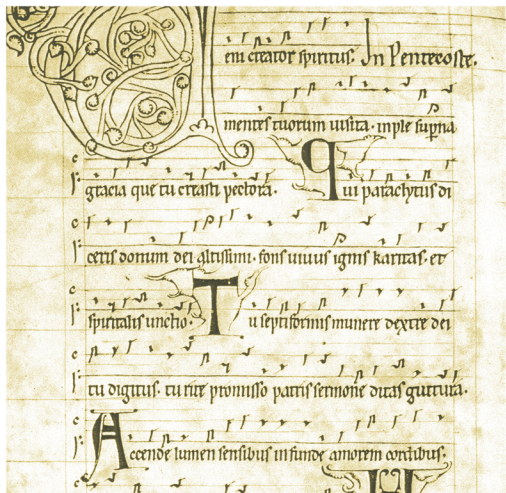 Veni creator spiritus. In Pentecoste.
mentes tuorum uisita. inple sup̄na
gracia que tu creasti pectora. Qui paraclytus di
ceris donum dei altissimi. fons uiuus ignis karitas. et
spiritalis unctio. Tu septiformis munere dextre dei
tu digitus. tu rite promisso patris sermone ditas guttura.
Accende lumen sensibus infunde amorem cordibus.
H